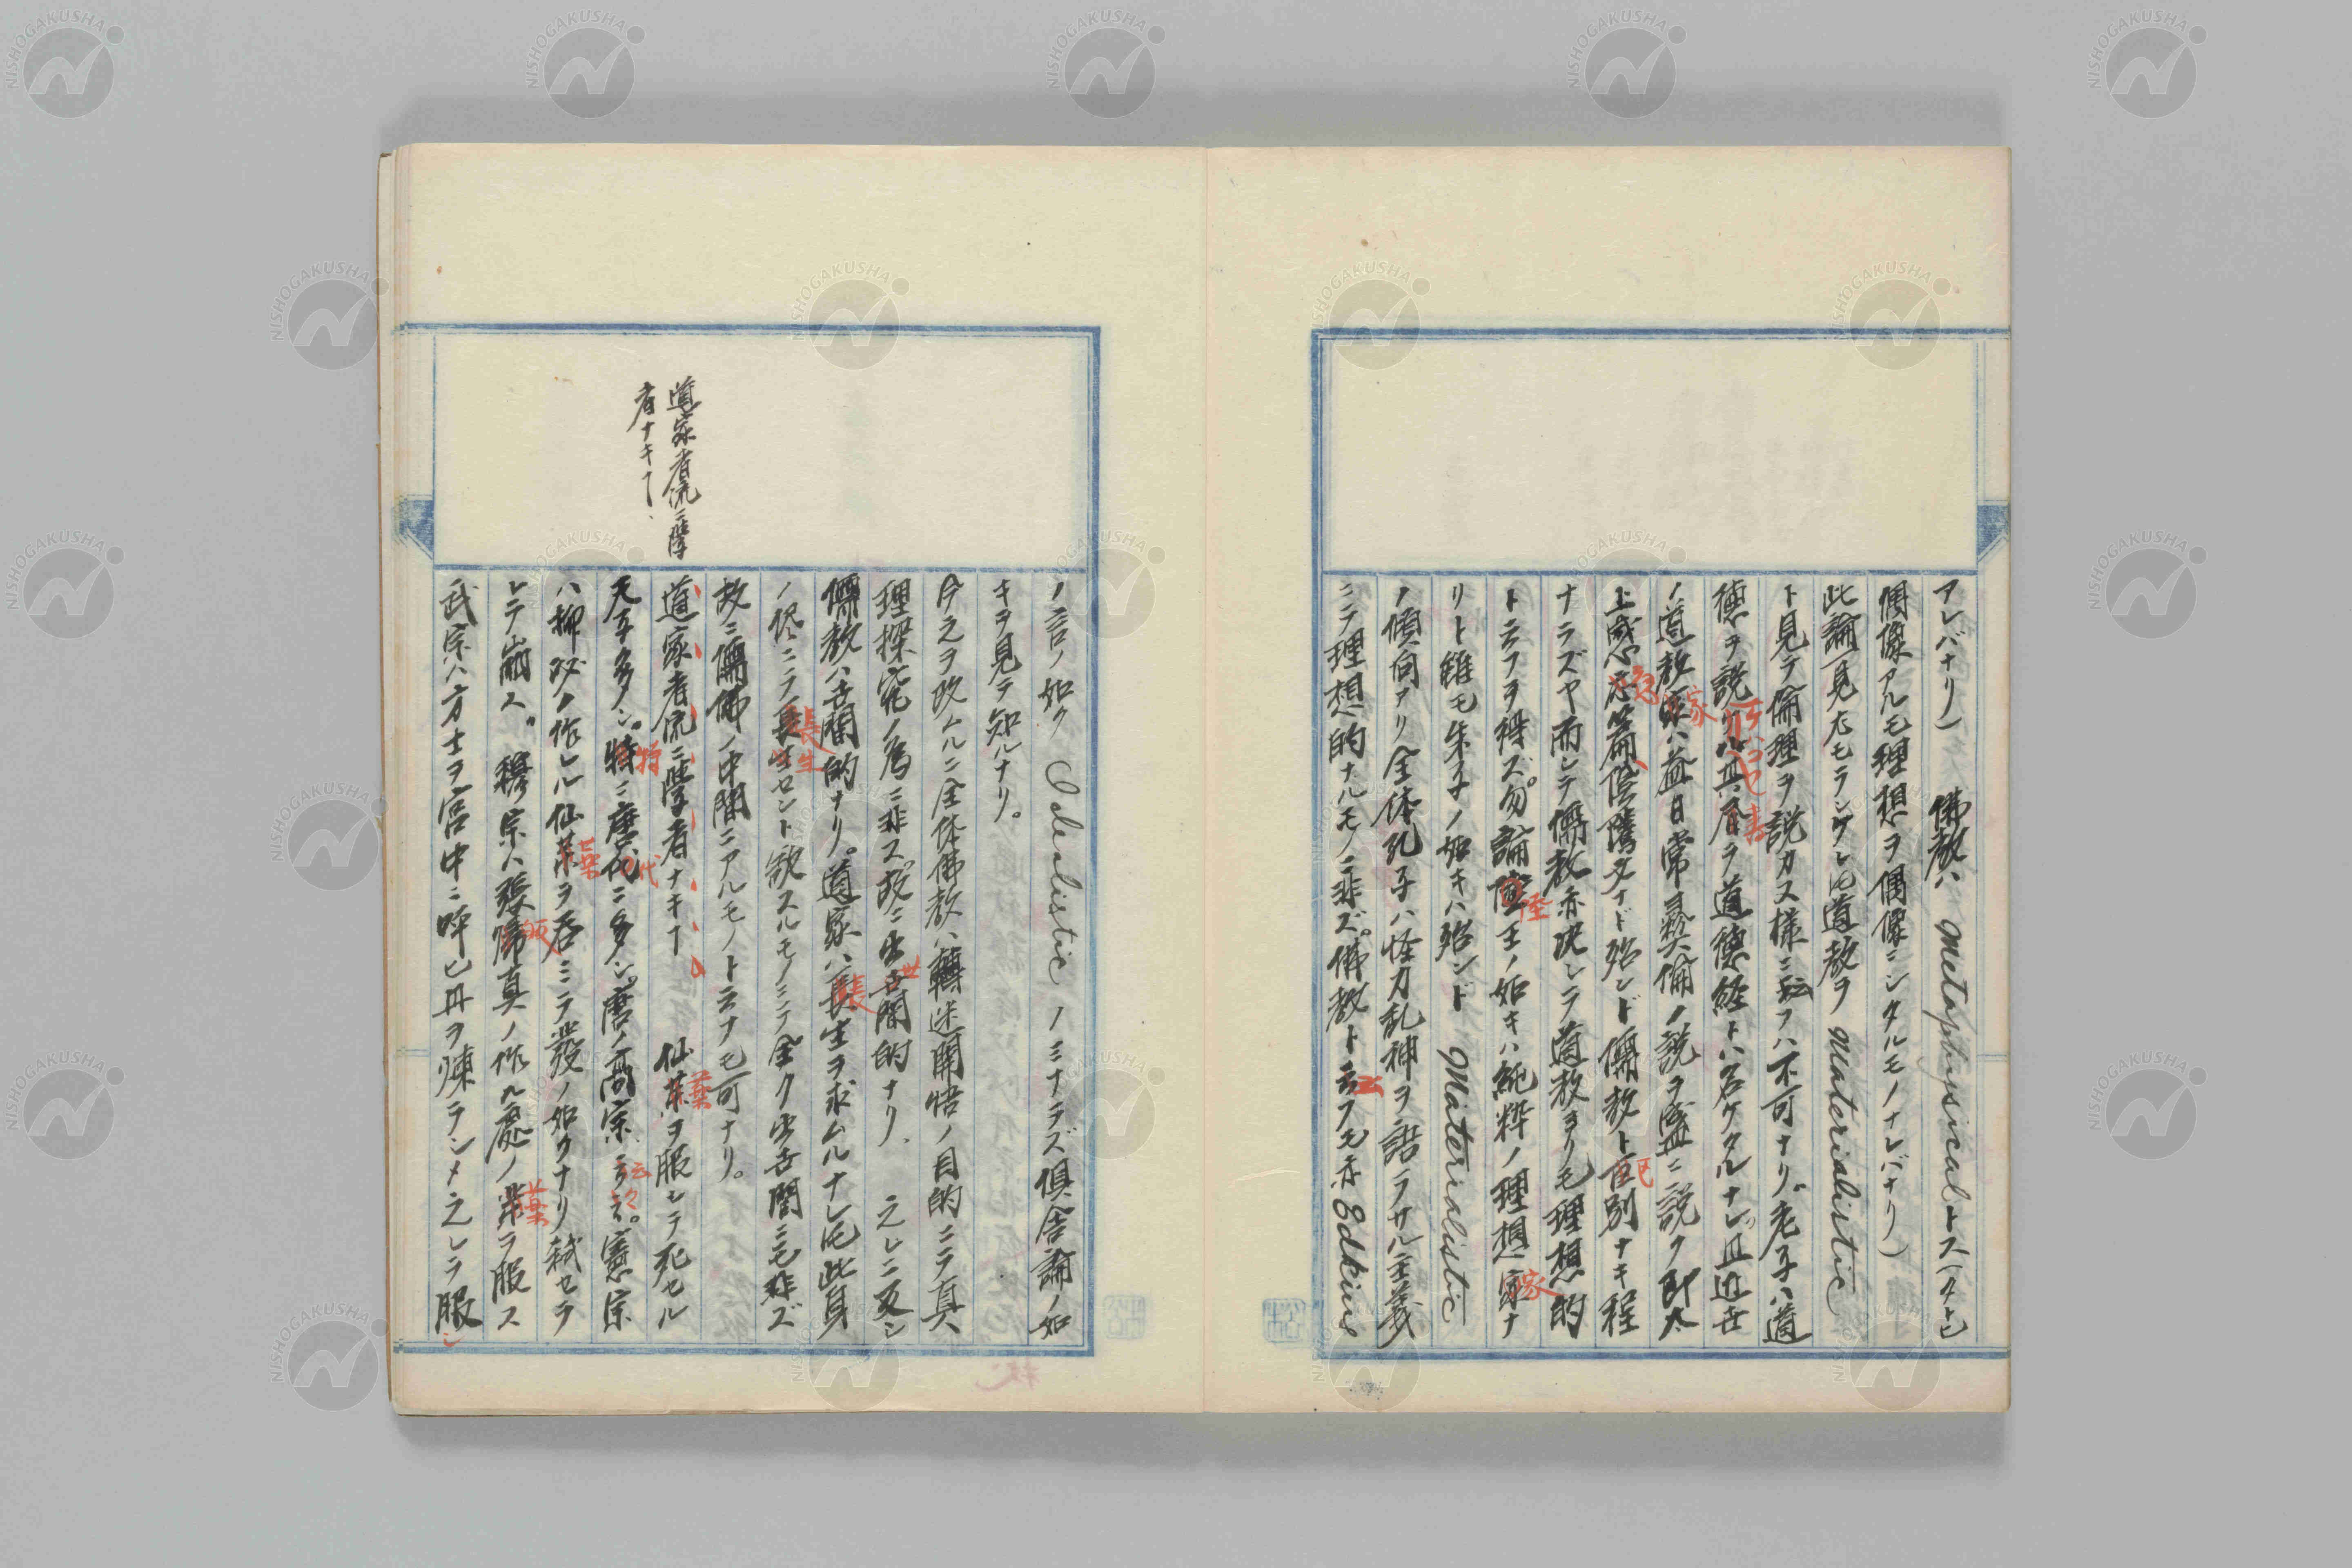 アレバナリ) 佛教ハ Metaphysical トス(タトヒ
偶像アルモ理想ヲ偶像ニシタルモノナレバナリ)
此論一見尤モラシケレ𪜈道教ヲ Materialistic
ト見テ倫理ヲ説カス様ニ云フハ不可ナリ。老子ハ道
徳ヲ説ケリ其書ヲ道徳経トハ名ケタルナレ。且近世
ノ道教家ハ益日常彝倫ノ説ヲ盛ニ説ク即太
上感応篇陰隲文ナド殆ンド儒教ト区別ナキ程
ナラズヤ而シテ儒教亦決シテ道教ヨリモ理想的
ト云フヲ得ズ。勿論陸王ノ如キハ純粋ノ理想家ナ
リト雖モ朱子ノ如キハ殆ンド Materialistic
ノ傾向アリ全体孔子ハ怪力乱神ヲ語ラサル主義
ニテ理想的ナルモノニ非ズ。佛教ト云フモ亦 Edkins
ノ言ノ如ク Idealistic ノミナラズ倶舎論ノ如
キヲ見テ知ルナリ。
今之ヲ改ムルニ全体佛教ハ轉迷開悟ノ目的ニテ真
理探究ノ為ニ非ス故ニ出世間的ナリ、之レニ反シ
儒教ハ世間的ナリ。道家ハ長生ヲ求ムルナレ𪜈此身
ノ侭ニテ長生セント欲スルモノニテ全ク出世間ニモ非ズ
故ニ儒佛ノ中間ニアルモノト云フモ可ナリ。
道家者流ニ學
者ナキヿ、
道家者流ニ學者ナキヿ 仙薬ヲ服シテ死セル
天子多シ。特ニ唐代ニ多シ。唐ノ高宗云々。憲宗
ハ柳泌ノ作レル仙薬ヲ呑ミテ發ノ如クナリ弑セラ
レテ崩ス。穆宗ハ張皈真ノ作ル處ノ薬ヲ服ス
武宗ハ方士ヲ宮中ニ呼ヒ丹ヲ煉ラシメ之レヲ服シ